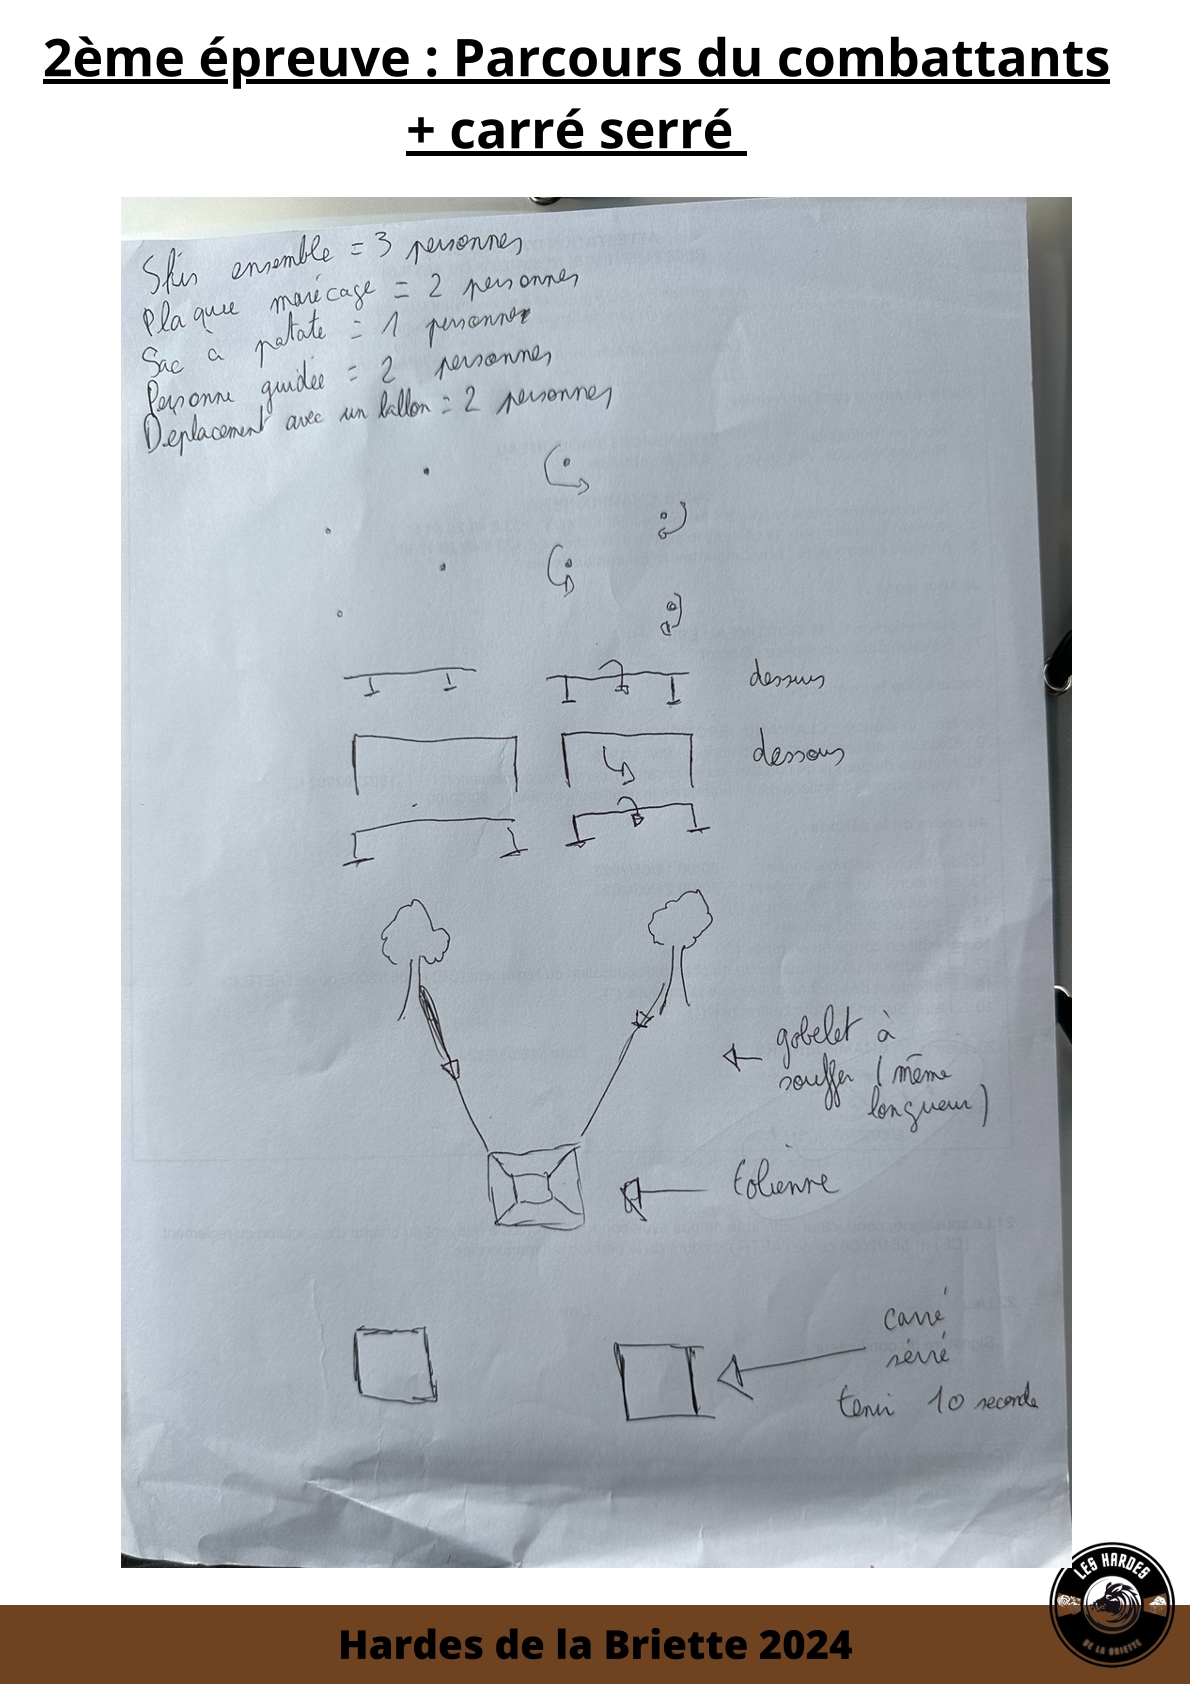 2ème épreuve : Parcours du combattants
+ carré serré
Skis ensemble = 3 personnes
Plaque marécage = 2 personnes
Sac à patate = 1 personne
Personne guidée = 2 personnes
Deplacement avec un ballon = 2 personnes
dessus
dessous
gobelet à
souffler (même
longueur)
carré
sérré
tenir 10 seconde
LES HARDES
DE LA BRIETTE
Hardes de la Briette 2024